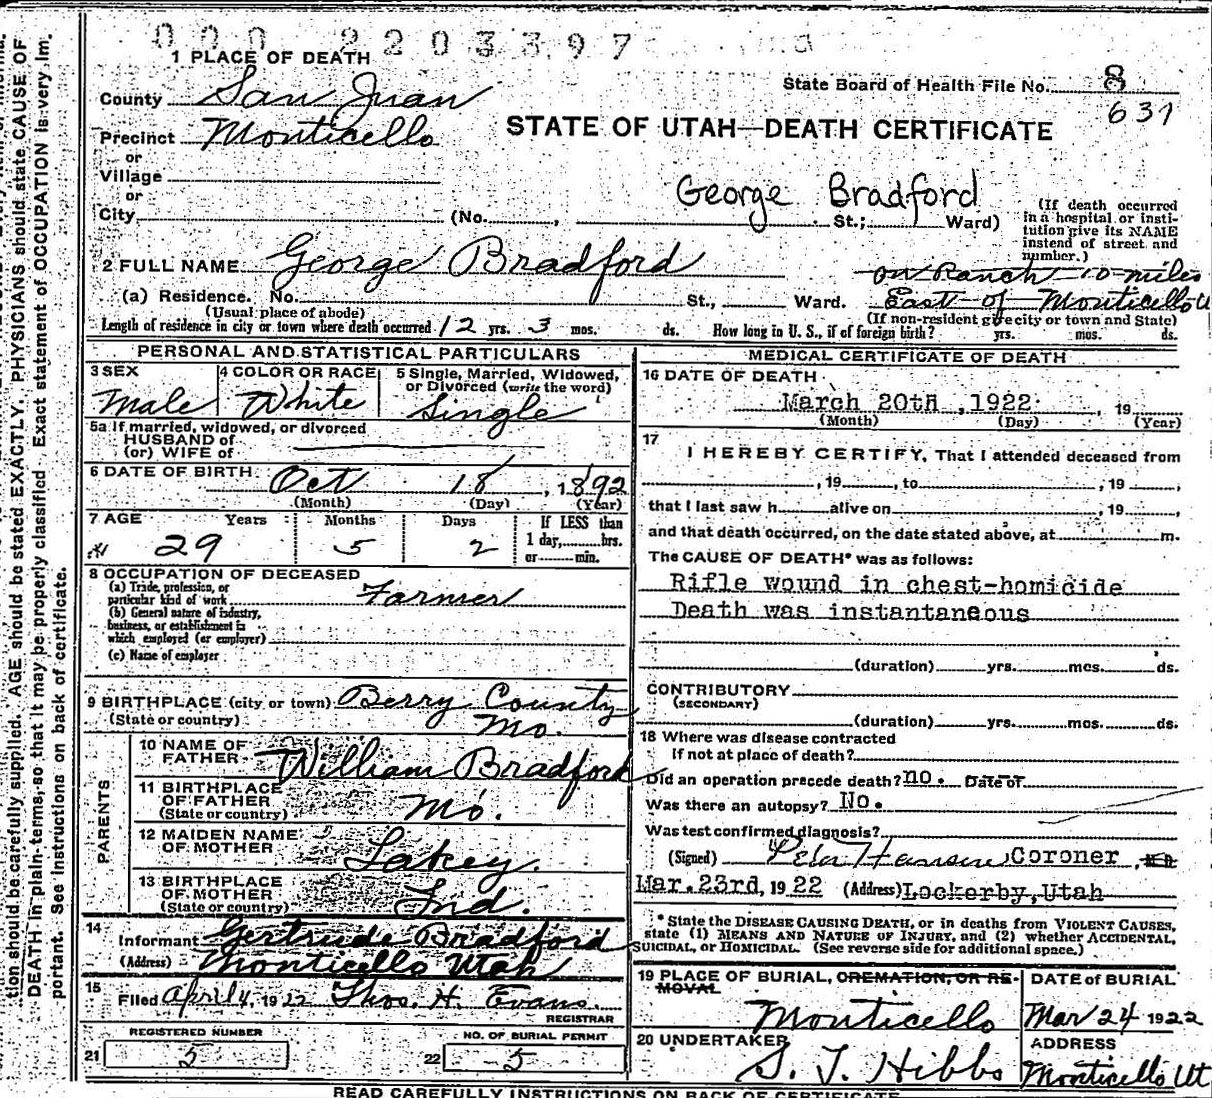 000 2203397
1 PLACE OF DEATH
State Board of Health File No. 8
631
County San Juan
Precinct Monticello
STATE OF UTAH—DEATH CERTIFICATE
or
Village
or
City (No. , St.; Ward)
George Bradford
(If death occurred in a hospital or insti-
tution give its NAME
instead of street and
number.)
2 FULL NAME George Bradford
on Ranch 10 miles
East of Monticello U
(a) Residence. No. St., Ward.
(Usual place of abode)
(If non-resident give city or town and State)
Length of residence in city or town where death occurred 12 yrs. 3 mos. ds. How long in U. S., if of foreign birth? yrs. mos. ds.
PERSONAL AND STATISTICAL PARTICULARS
3 SEX
Male
4 COLOR OR RACE
White
5 Single, Married, Widowed,
or Divorced (write the word)
Single
5a If married, widowed, or divorced
HUSBAND of
(or) WIFE of
6 DATE OF BIRTH Oct 18, 1892
(Month) (Day) (Year)
7 AGE Years Months Days If LESS than
1 day, hrs.
or min.
29 5 2
8 OCCUPATION OF DECEASED
(a) Trade, profession, or
particular kind of work Farmer
(b) General nature of industry,
business, or establishment in
which employed (or employer)
(c) Name of employer
9 BIRTHPLACE (city or town) Berry County
(State or country) Mo.
PARENTS
10 NAME OF
FATHER William Bradford
11 BIRTHPLACE
OF FATHER
(State or country) Mo.
12 MAIDEN NAME
OF MOTHER Lakey.
13 BIRTHPLACE
OF MOTHER
(State or country) Ind.
14
Informant Gertrude Bradford
(Address) Monticello Utah
15
Filed April 4, 1922 Thos. H. Evans.
REGISTRAR
REGISTERED NUMBER
21 5
NO. OF BURIAL PERMIT
22 5
MEDICAL CERTIFICATE OF DEATH
16 DATE OF DEATH
March 20th ,1922 , 19
(Month) (Day) (Year)
17
I HEREBY CERTIFY, That I attended deceased from
, 19 , to , 19 ,
that I last saw h alive on , 19 ,
and that death occurred, on the date stated above, at m.
The CAUSE OF DEATH* was as follows:
Rifle wound in chest-homicide
Death was instantaneous
(duration) yrs. mos. ds.
CONTRIBUTORY
(SECONDARY)
(duration) yrs. mos. ds.
18 Where was disease contracted
if not at place of death?
Did an operation precede death? no. Date of
Was there an autopsy? No.
Was test confirmed diagnosis?
(Signed) Peter Hansen Coroner
Mar. 23rd, 1922 (Address) Lockerby, Utah
* State the DISEASE CAUSING DEATH, or in deaths from VIOLENT CAUSES,
state (1) MEANS AND NATURE OF INJURY, and (2) whether ACCIDENTAL,
SUICIDAL, or HOMICIDAL. (See reverse side for additional space.)
19 PLACE OF BURIAL, CREMATION, OR RE-
MOVAL
Monticello
DATE of BURIAL
Mar 24 1922
20 UNDERTAKER
S. J. Hibbs
ADDRESS
Monticello Ut
READ CAREFULLY INSTRUCTIONS ON BACK OF CERTIFICATE
tion should be carefully supplied. AGE should be stated EXACTLY. PHYSICIANS should state CAUSE OF
DEATH in plain terms, so that it may be properly classified. Exact statement of OCCUPATION is very im-
portant. See instructions on back of certificate.